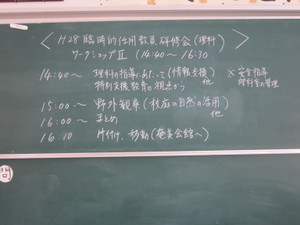 ＜H28 臨時的任用教員研修会(理科)＞
ワークショップⅡ (14:40〜16:30
14:40〜 理科の指導にあたって(情報交換)他
特別支援教育の視点から
※安全指導
理科室の管理
15:00〜 野外観察(校庭の自然の活用)他
16:00〜 まとめ
16:10 片付け、移動(奄美会館へ)